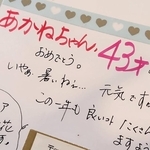 あかねちゃん、43才
おめでとう。
いやぁ 暑いねぇ…
元気です
この一年も 良いコト たくさん
ますよう
ア
花
す。